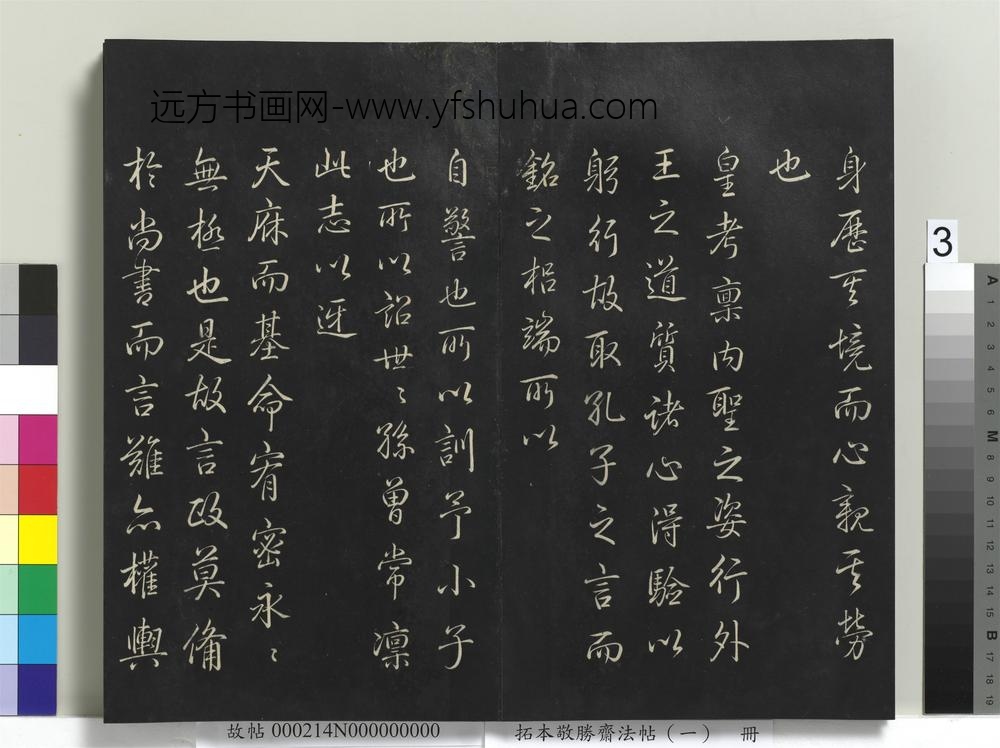 远方书画网-www.yfshuhua.com
身歷其境而心親其勞
也
皇考稟內聖之姿行外
王之道質諸心得驗以
躬行故取孔子之言而
銘之梠端所以
自警也所以訓予小子
也所以詔世〻孫曾常凜
此志以迓
天庥而基命宥密永〻
無極也是故言政莫備
於尚書而言雖亦權輿
3
A 1 2 3 4 5 M 8 9 10 11 12 13 14 15 B 17 18 19
故帖 000214N000000000
拓本敬勝齋法帖（一） 冊